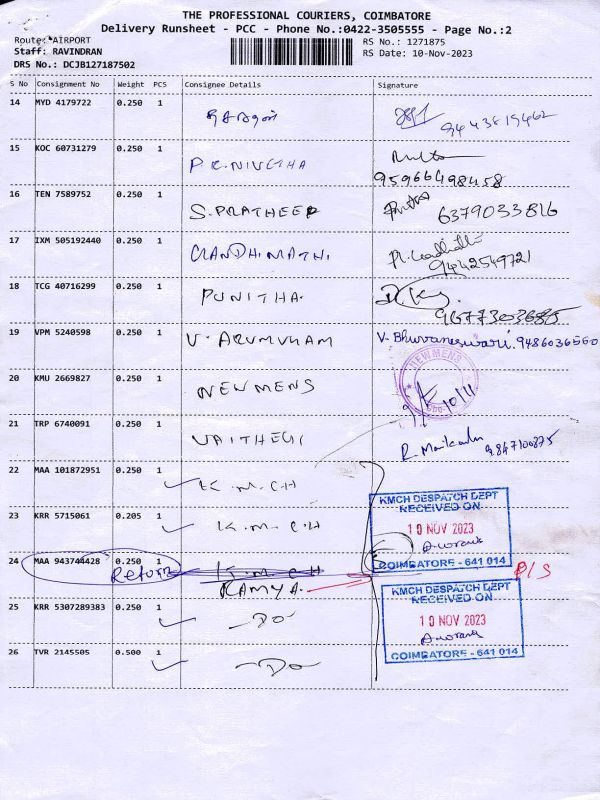 THE PROFESSIONAL COURIERS, COIMBATORE
Delivery Runsheet - PCC - Phone No.:0422-3505555 - Page No.:2
Route: AIRPORT
Staff: RAVINDRAN
DRS No.: DCJB127187502
RS No.: 1271875
RS Date: 10-Nov-2023
S No Consignment No Weight PCS Consignee Details Signature
14 MYD 4179722 0.250 1
9443819462
15 KOC 60731279 0.250 1 P.R.NIVETHA
95966498458
16 TEN 7589752 0.250 1 S.PRATHEEP
6379033816
17 IXM 505192440 0.250 1 GANDHIMATHI
9442549721
18 TCG 40716299 0.250 1 PUNITHA.
9677303685
19 VPM 5240598 0.250 1 V. ARUMUHAM V. Bhuvaneswari. 9486036560
20 KMU 2669827 0.250 1 NEWMENS
NEWMENS
10/11
21 TRP 6740091 0.250 1 VAITHEGI
9847100875
22 MAA 101872951 0.250 1 K.M.C.H
23 KRR 5715061 0.205 1 K.M.C.H
KMCH DESPATCH DEPT
RECEIVED ON
10 NOV 2023
COIMBATORE - 641 014
24 MAA 943744428 0.250 1 K.M.C.H
Return RAMYA.
25 KRR 5307289383 0.250 1 -Do-
26 TVR 2145505 0.500 1 -Do-
KMCH DESPATCH DEPT
RECEIVED ON
10 NOV 2023
COIMBATORE - 641 014